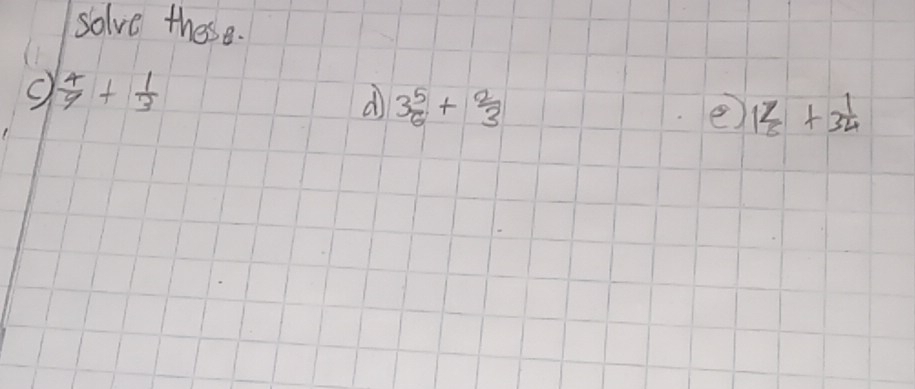 solve these.
c) 4/9 + 1/3 d) 3 5/6 + 2/3 e) 1 7/8 + 3 1/4